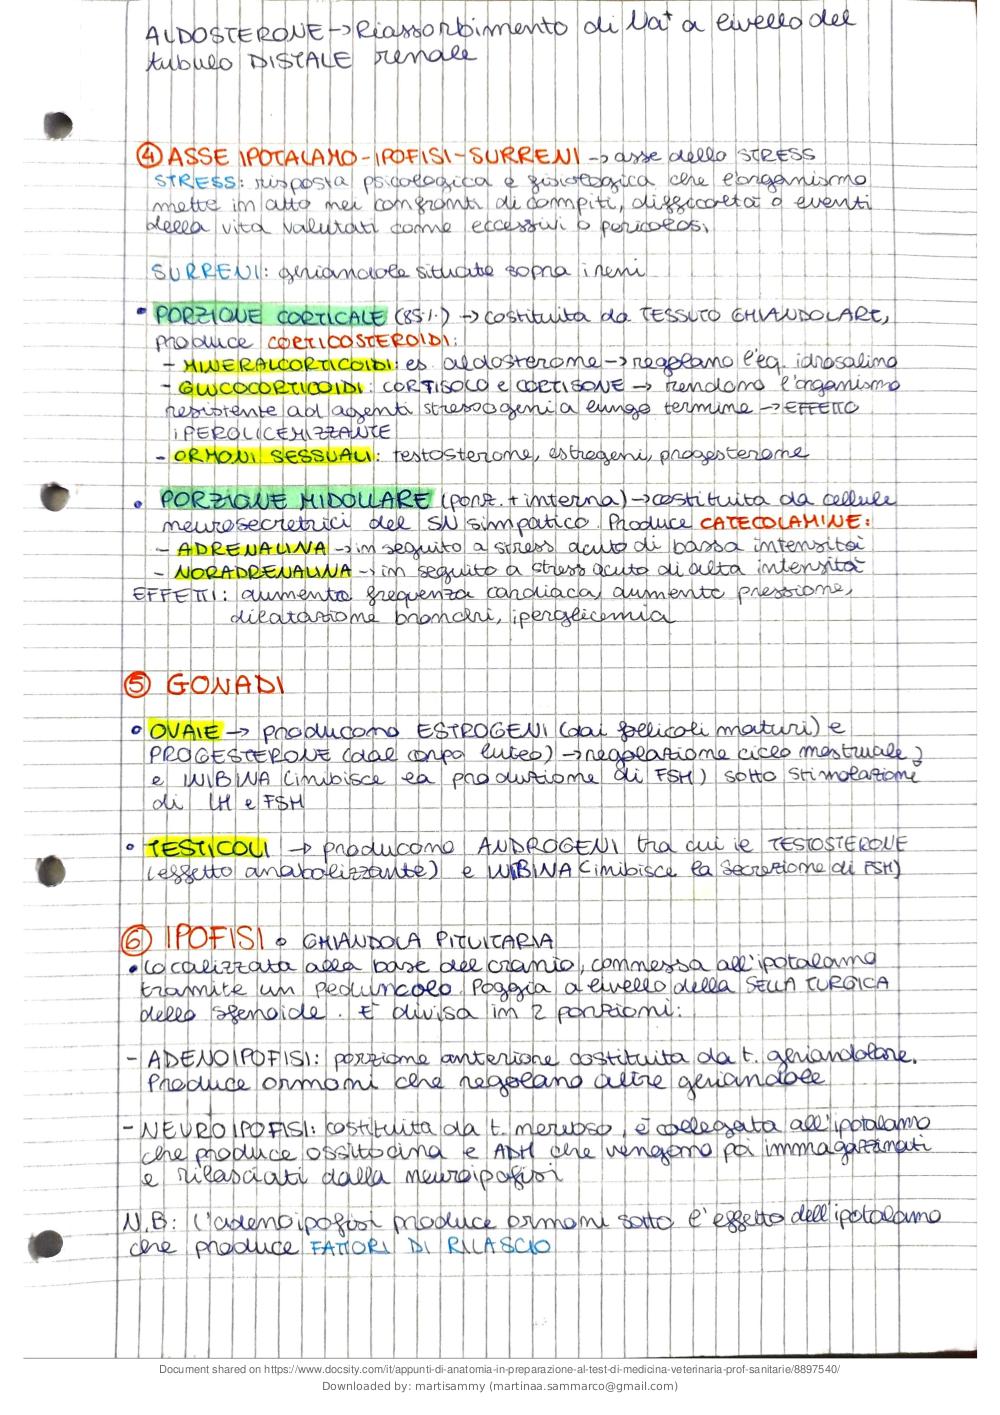 ALDOSTERONE → Riassorbimento di Na⁺ a livello del
tubulo DISTALE renale
④ ASSE IPOTALAMO-IPOFISI-SURRENI → asse dello STRESS
STRESS: risposta psicologica e fisiologica che l'organismo
mette in atto nei confronti di compiti, difficoltà o eventi
della vita valutati come eccessivi o pericolosi
SURRENI: ghiandole situate sopra i reni
• PORZIONE CORTICALE (85%) → costituita da TESSUTO GHIANDOLARE,
produce CORTICOSTEROIDI:
- MINERALCORTICOIDI: es. aldosterone → regolano l'eq. idrosalino
- GLUCOCORTICOIDI: CORTISOLO e CORTISONE → rendono l'organismo
resistente ad agenti stressogeni a lungo termine → EFFETTO
IPERGLICEMIZZANTE
- ORMONI SESSUALI: testosterone, estrogeni, progesterone
• PORZIONE MIDOLLARE (porz. + interna) → costituita da cellule
neurosecretrici del SN simpatico. Produce CATECOLAMINE:
- ADRENALINA → in seguito a stress acuto di bassa intensità
- NORADRENALINA → in seguito a stress acuto di alta intensità
EFFETTI: aumento frequenza cardiaca, aumento pressione,
dilatazione bronchi, iperglicemia
⑤ GONADI
• OVAIE → producono ESTROGENI (dai follicoli maturi) e
PROGESTERONE (dal corpo luteo) → regolazione ciclo mestruale;
e INIBINA (inibisce la produzione di FSH) sotto stimolazione
di LH e FSH
• TESTICOLI → producono ANDROGENI tra cui il TESTOSTERONE
(effetto anabolizzante) e INIBINA (inibisce la secrezione di FSH)
⑥ IPOFISI o GHIANDOLA PITUITARIA
• Localizzata alla base del cranio, connessa all'ipotalamo
tramite un peduncolo. Poggia a livello della SELLA TURGICA
dello sfenoide. E' divisa in 2 porzioni:
- ADENOIPOFISI: porzione anteriore costituita da t. ghiandolare.
Produce ormoni che regolano altre ghiandole
- NEUROIPOFISI: costituita da t. nervoso, è collegata all'ipotalamo
che produce ossitocina e ADH che vengono poi immagazzinati
e rilasciati dalla neuroipofisi
N.B: L'adenoipofisi produce ormoni sotto l'effetto dell'ipotalamo
che produce FATTORI DI RILASCIO
Document shared on https://www.docsity.com/it/appunti-di-anatomia-in-preparazione-al-test-di-medicina-veterinaria-prof-sanitarie/8897540/
Downloaded by: martisammy (martinaa.sammarco@gmail.com)